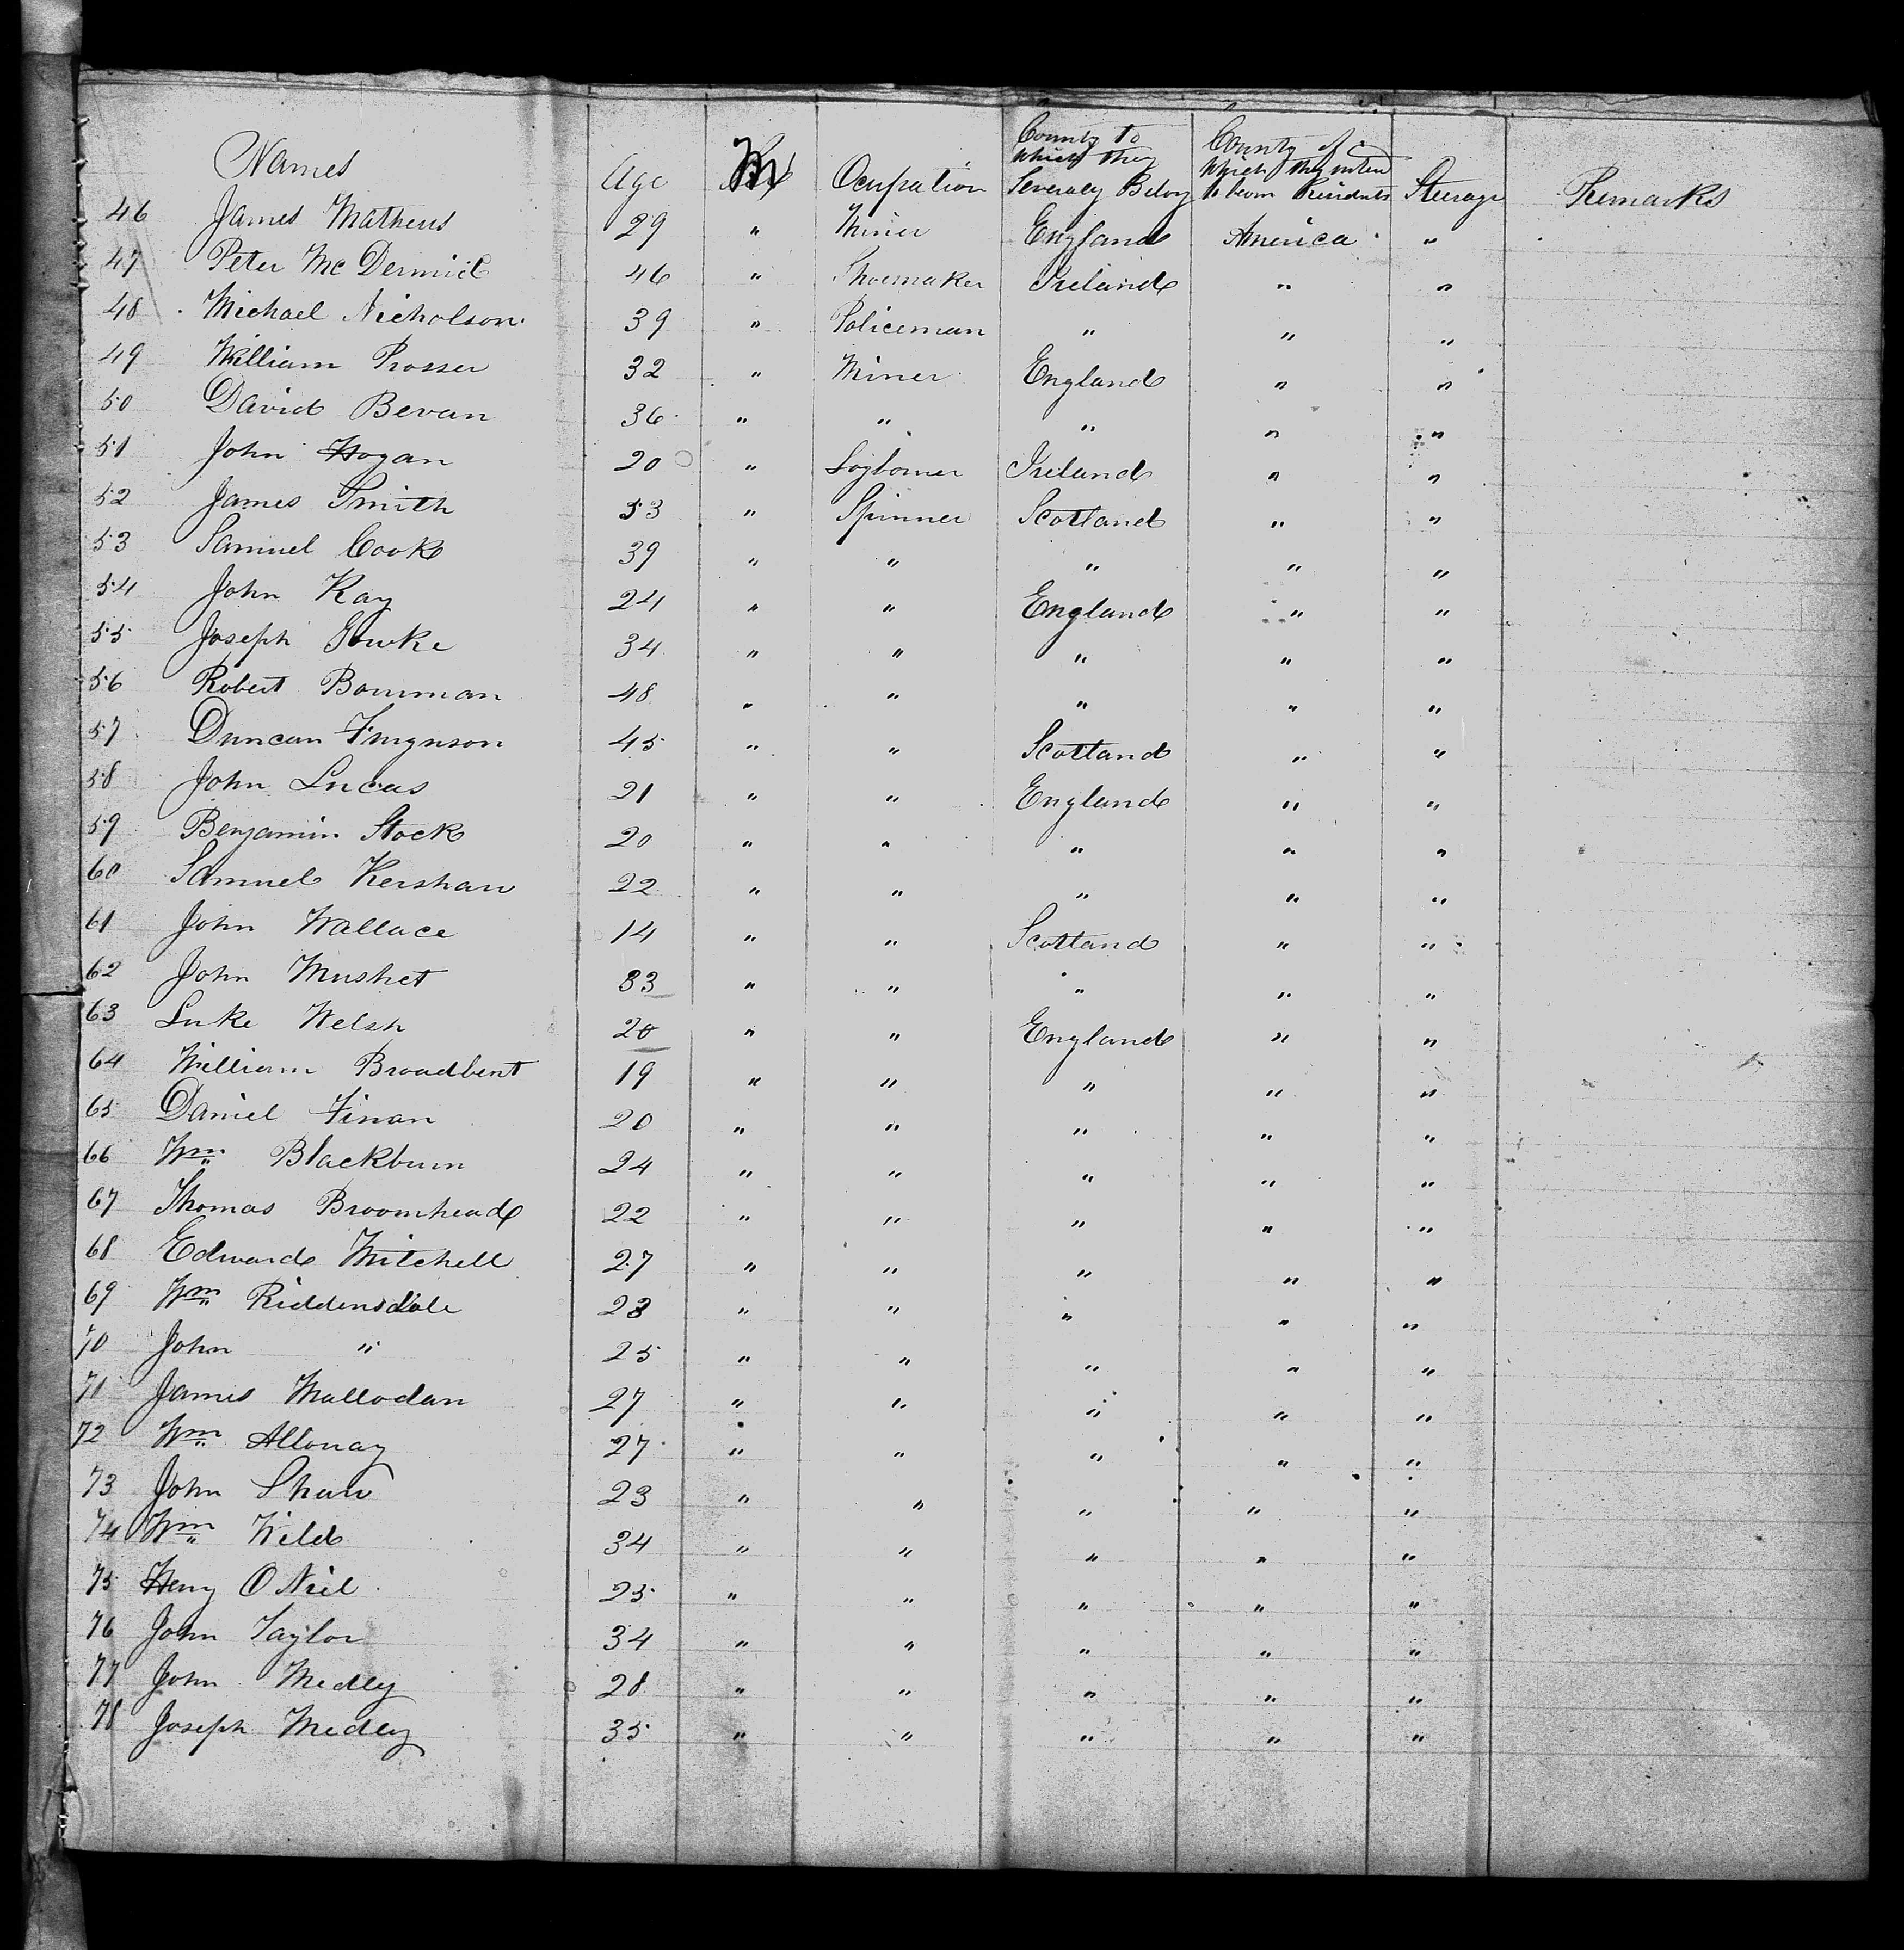 Names Age Sex Ocupation County to which they Severaly Belong County of which they inten to becom Residents Steerage Remarks
46 James Mathews 29 " Miner England America "
47 Peter McDermid 46 " Shoemaker Ireland " "
48 Michael Nicholson 39 " Policeman " " "
49 William Prosser 32 " Miner England " "
50 David Bevan 36 " " " " "
51 John Hogan 20 " Ireland " "
52 James Smith 53 " Spinner Scotland " "
53 Samuel Cook 39 " " " " "
54 John Kay 24 " " England " "
55 Joseph 34 " " " " "
56 Robert Bowman 48 " " " " "
57 Duncan Furgnson 45 " " Scotland " "
58 John Lucas 21 " " England " "
59 Benjamin Stock 20 " " " " "
60 Samuel Kershaw 22 " " " " "
61 John Wallace 14 " " Scotland " "
62 John Mushet 33 " " " " "
63 Luke Welsh 20 " " England " "
64 William Broadbent 19 " " " " "
65 Daniel Finan 20 " " " " "
66 Wm Blackburn 24 " " " " "
67 Thomas Broomhead 22 " " " " "
68 Edward Mitchell 27 " " " " "
69 Wm Riddensdale 23 " " " " "
70 John " 25 " " " " "
71 James Mallodan 27 " " " " "
72 Wm Alloway 27 " " " " "
73 John Shaw 23 " " " " "
74 Wm Wild 34 " " " " "
75 Heny O Niel 25 " " " " "
76 John Taylor 34 " " " " "
77 John Medley 28 " " " " "
78 Joseph Medley 35 " " " " "